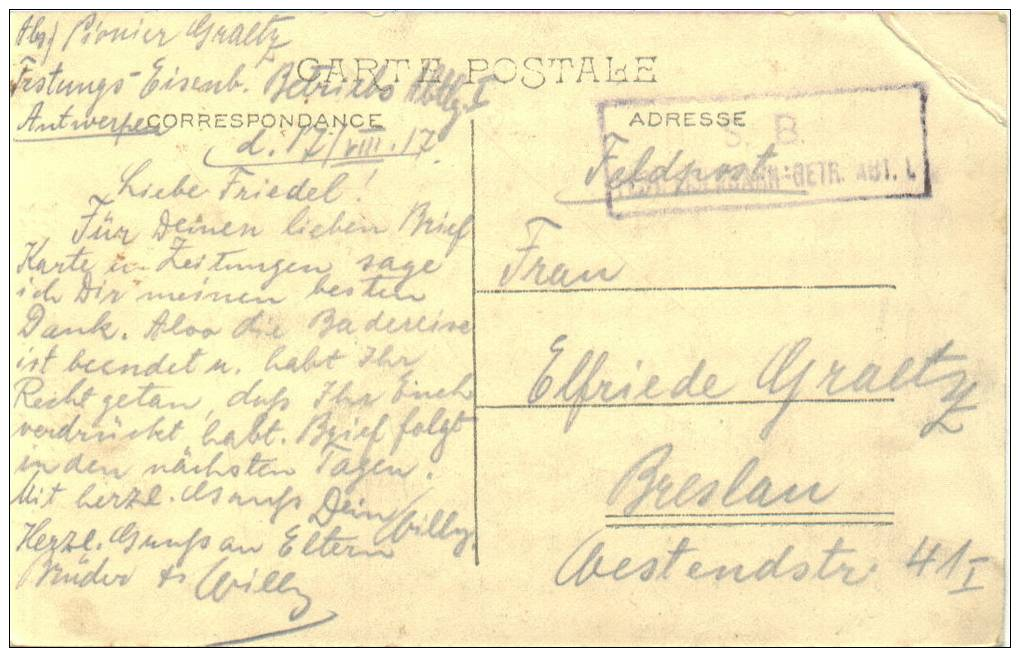 Abs) Pionier Graetz
Festungs-Eisenb. Betriebs Abtlg. I
Antwerpen
CARTE POSTALE
CORRESPONDANCE
d. 17/VIII. 17.
Liebe Friedel!
Für Deinen lieben Brief
Karte u. Zeitungen sage
ich Dir meinen besten
Dank. Also die Badereise
ist beendet u. habt Ihr
Recht getan, daß Ihr Euch
verdrückt habt. Brief folgt
in den nächsten Tagen.
Mit herzl. Gruß Dein Willy.
Herzl. Gruß an Eltern
Brüder Willy
ADRESSE
S. B.
EISENBAHN-BETR. ABT. I
Feldpost
Frau
Elfriede Graetz
Breslau
Westendstr. 41 I